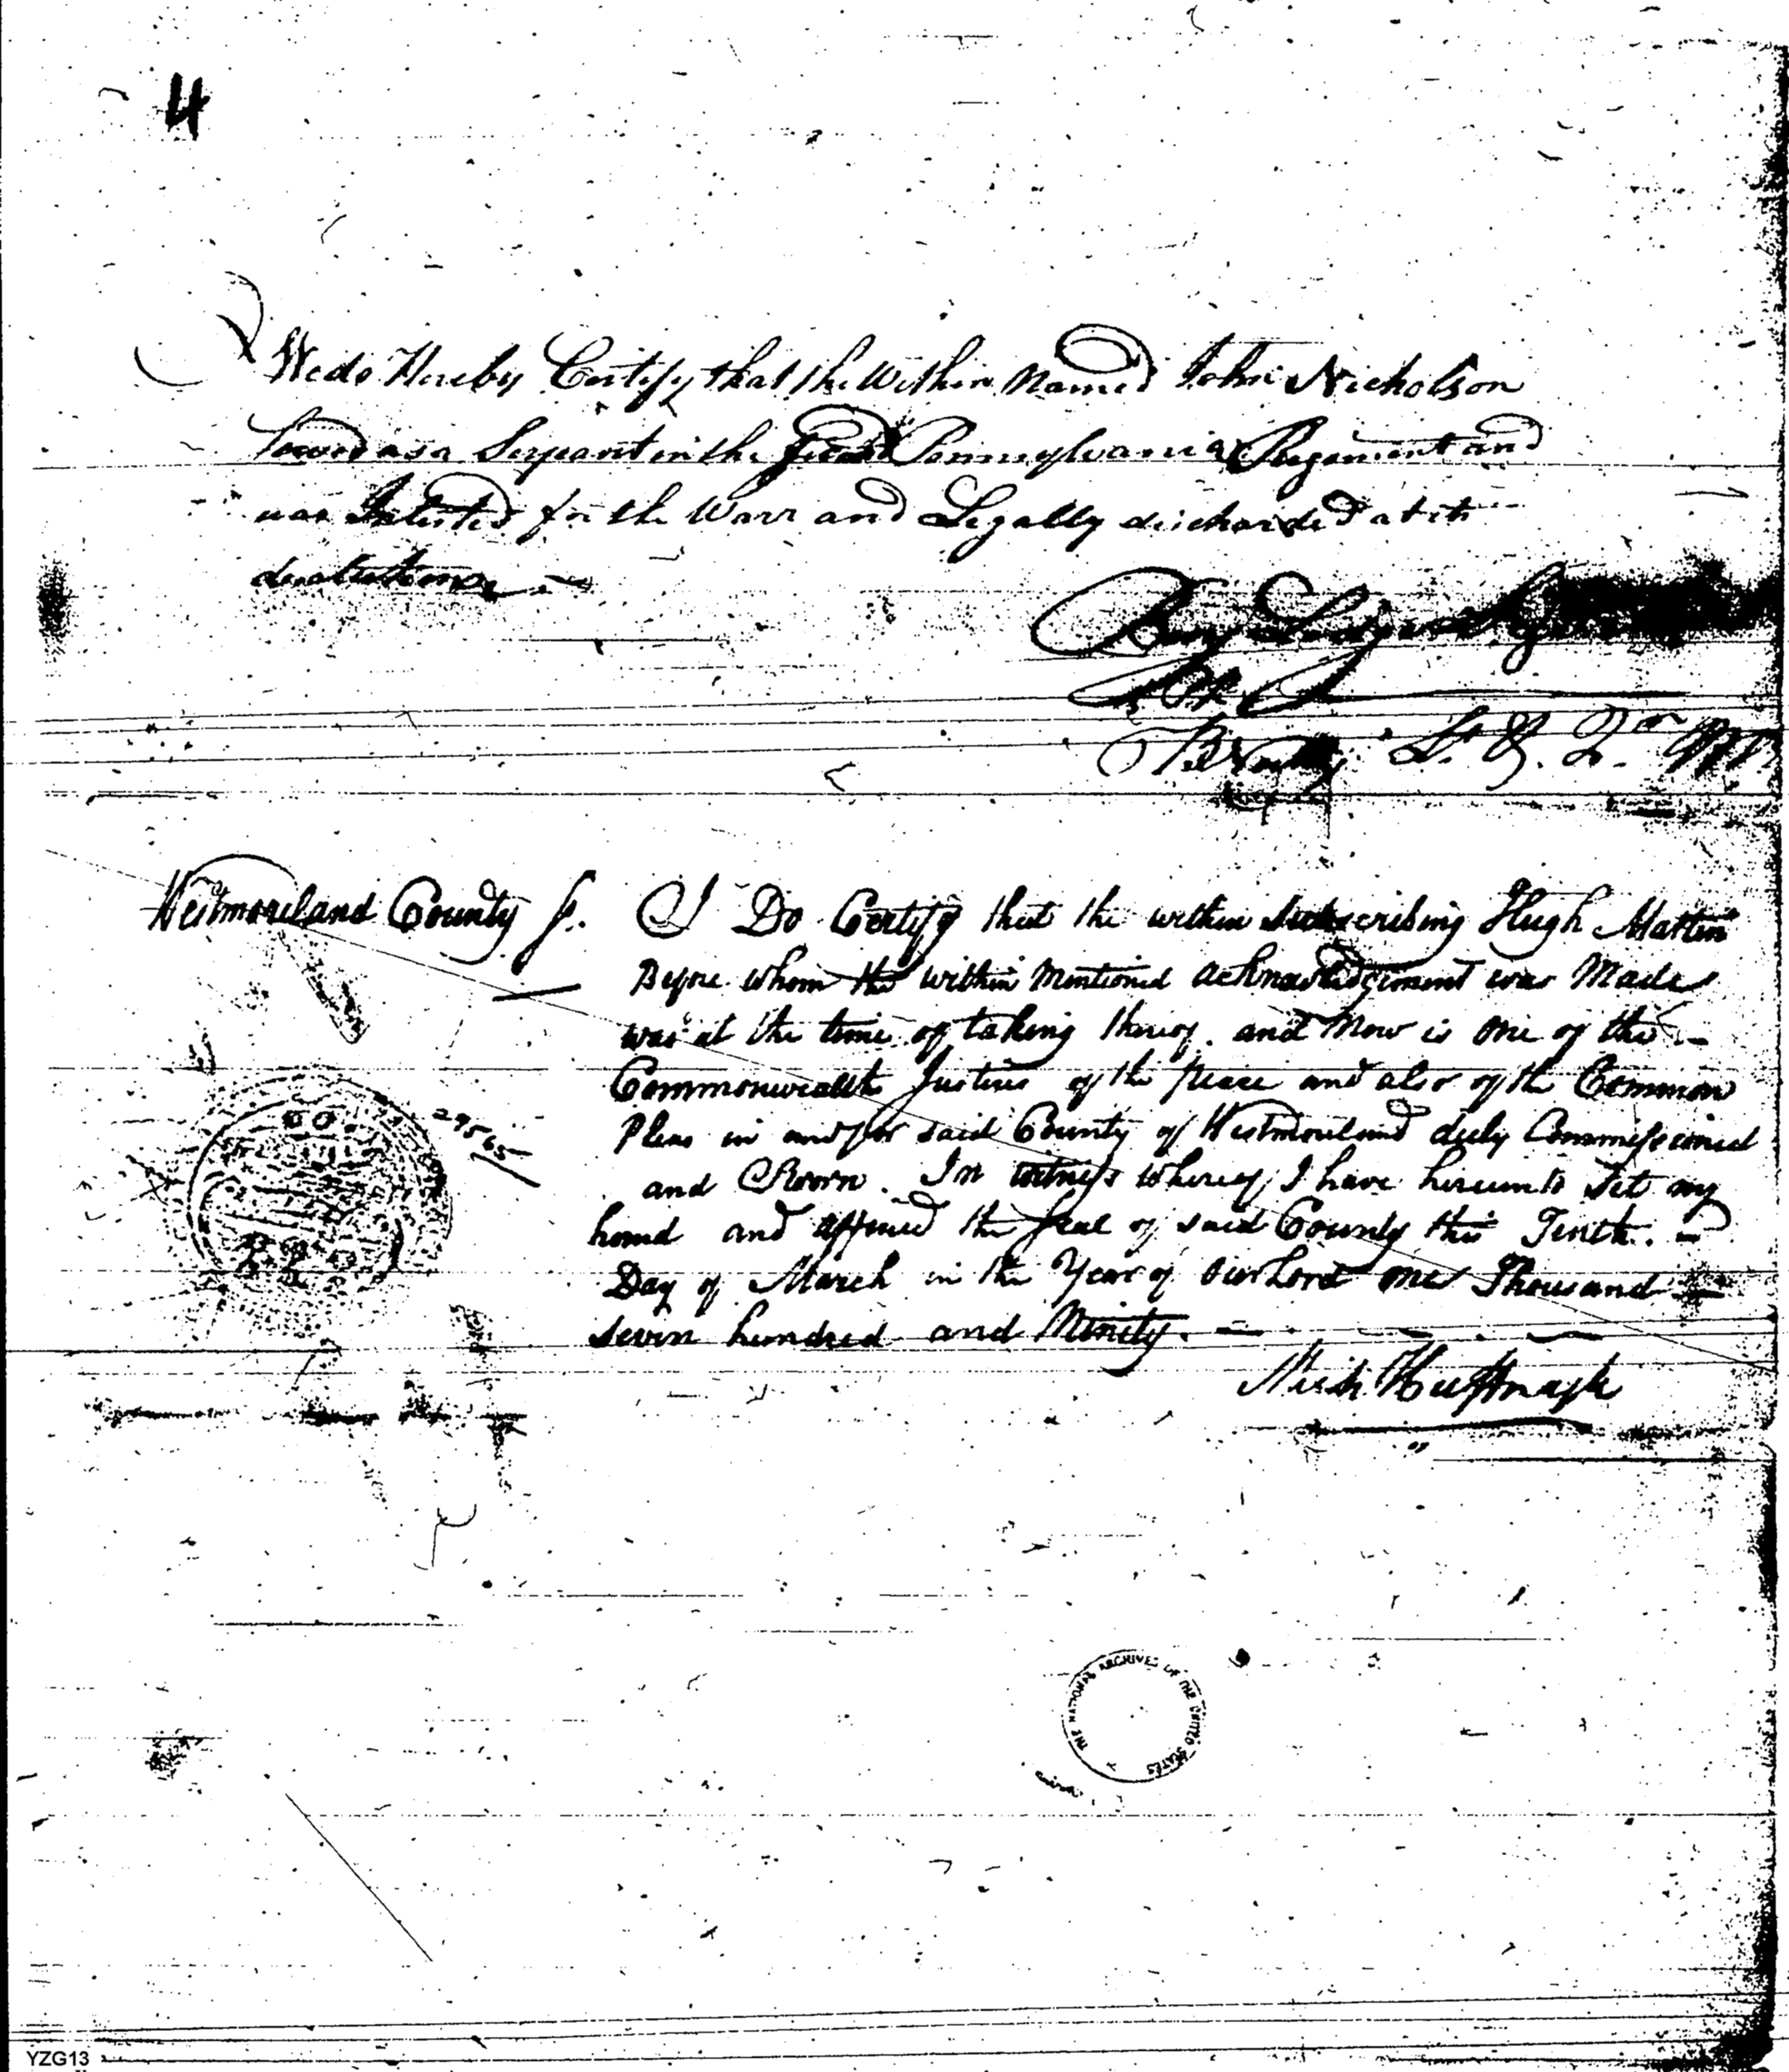 4
We do Hereby Certify that the within Named John Nicholson
Served as a Serjeant in the Pennsylvania Regement and
was Inlisted for the Warr and Legally discharded at its
Westmoreland County ss. I Do Certify that the within Subscribing Hugh Martin
Before whom the within Mentioned acknowledgement was Made
was at the time of taking thereof and Now is one of the
Commonwealth Justices of the peace and also of the Common
Pleas in and for said County of Westmoreland duly Commissioned
and Sworn. In witness whereof I have hereunto Set my
hand and affixed the Seal of said County this Tenth
29565
Day of March in the Year of our Lord one Thousand
Seven hundred and Ninety.
Mich Huffnagle
THE NATIONAL ARCHIVES OF THE UNITED STATES
YZG13